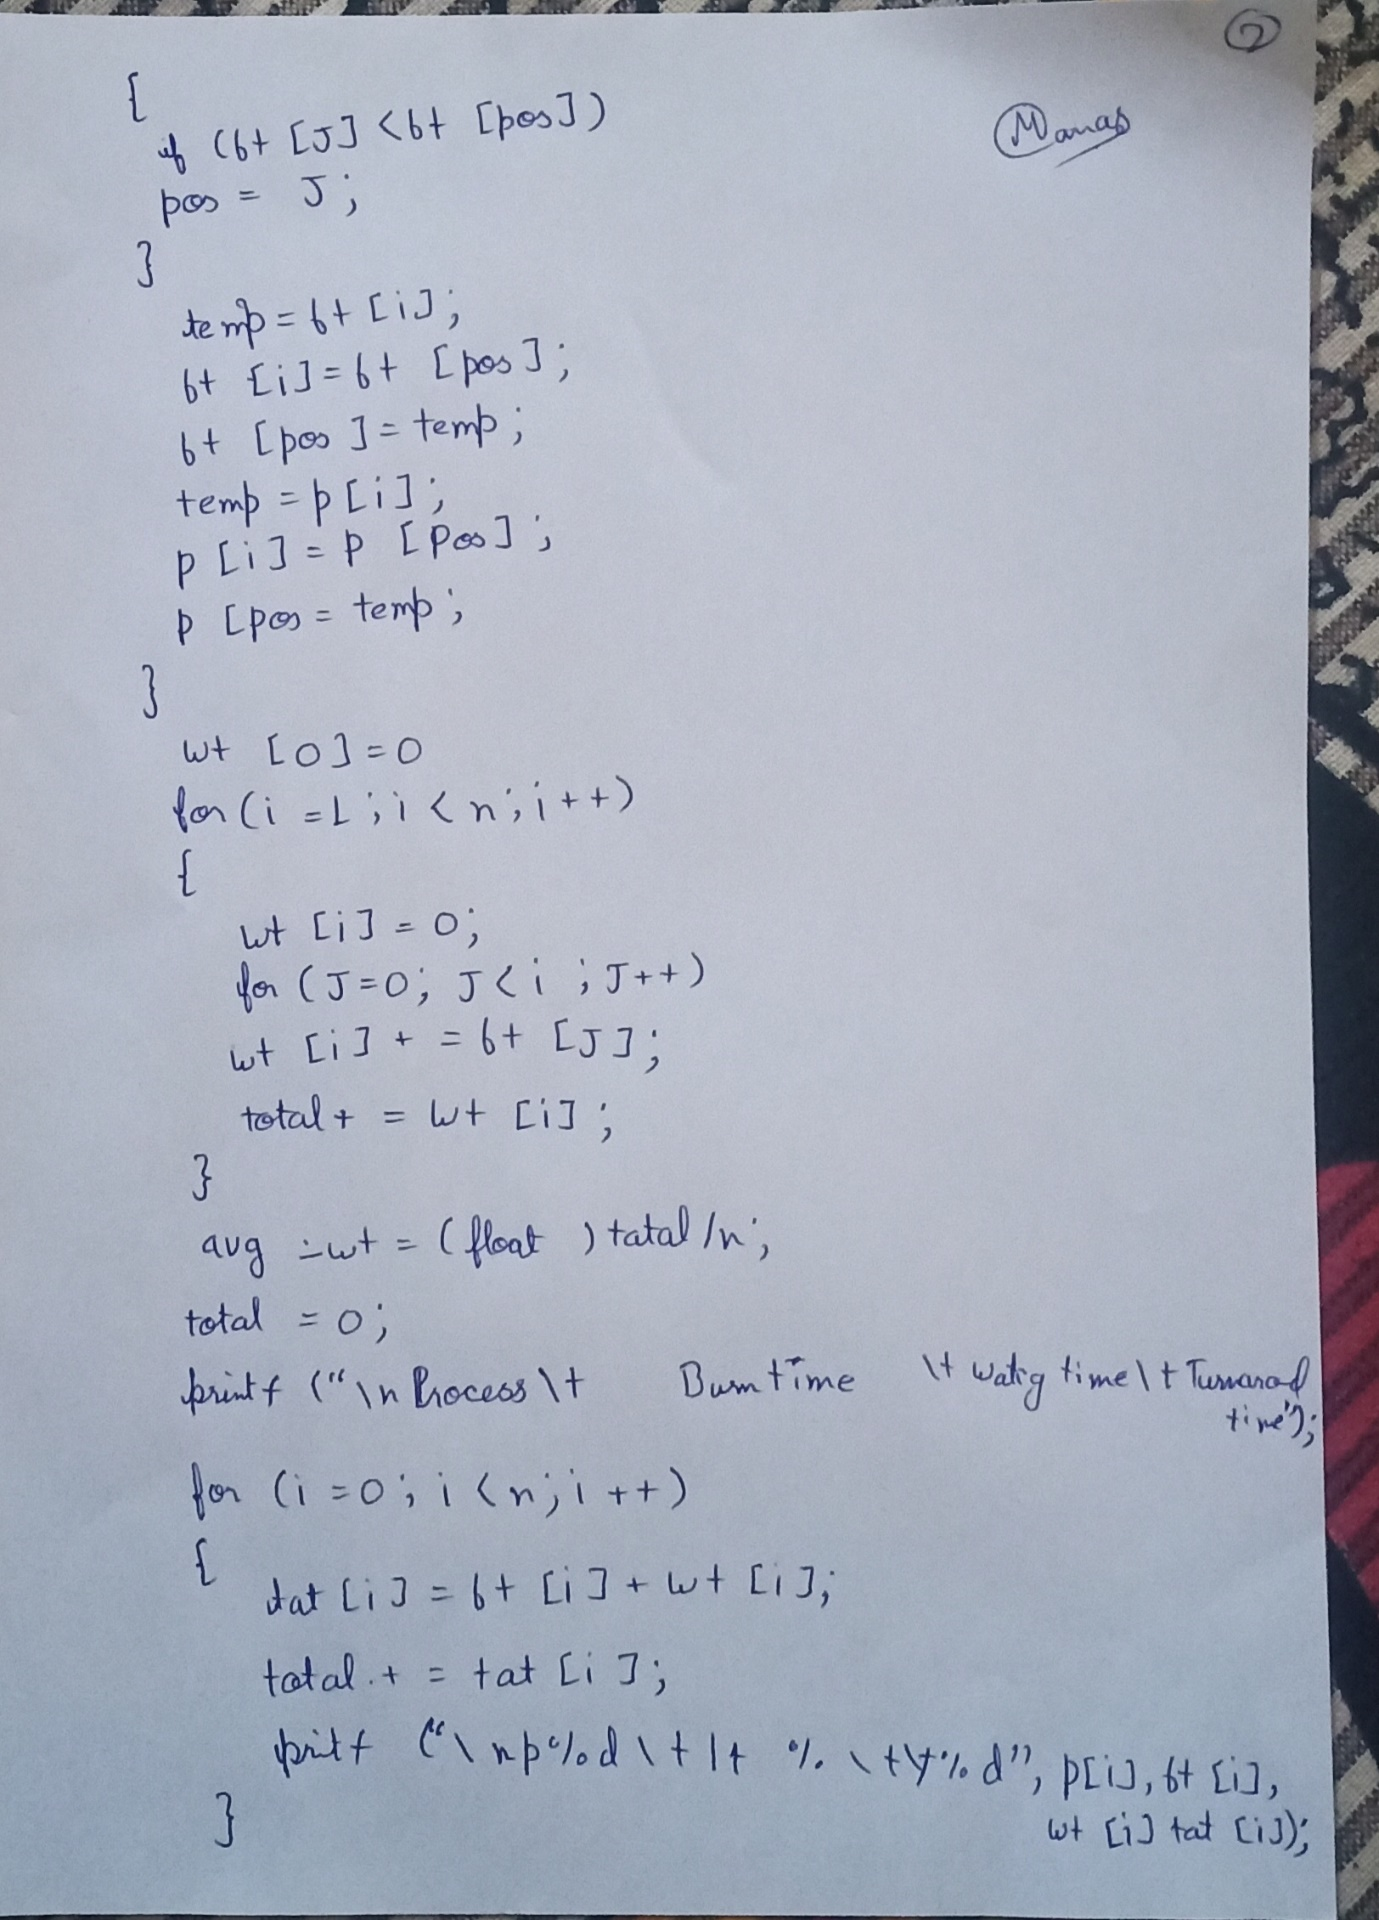 2
Manas
{
if (bt [J] <bt [pos])
pos = J;
}
temp = bt [i];
bt [i] = bt [pos];
bt [pos] = temp;
temp = p[i];
p [i] = p [Pos];
p [pos = temp;
}
wt [0] = 0
for (i = 1; i < n; i++)
{
wt [i] = 0;
for (J=0; J<i ; J++)
wt [i] + = bt [J];
total + = wt [i];
}
avg -wt = (float ) tatal /n;
total = 0;
printf ("\n Process \t Burn time \t watig time \t Turnarod
time");
for (i = 0; i <n; i ++)
{
tat [i] = bt [i] + wt [i];
total.+ = tat [i];
pritf ("\np%d \t \t %. \t\t%d", p[i], bt [i],
wt [i] tat [i]);
}